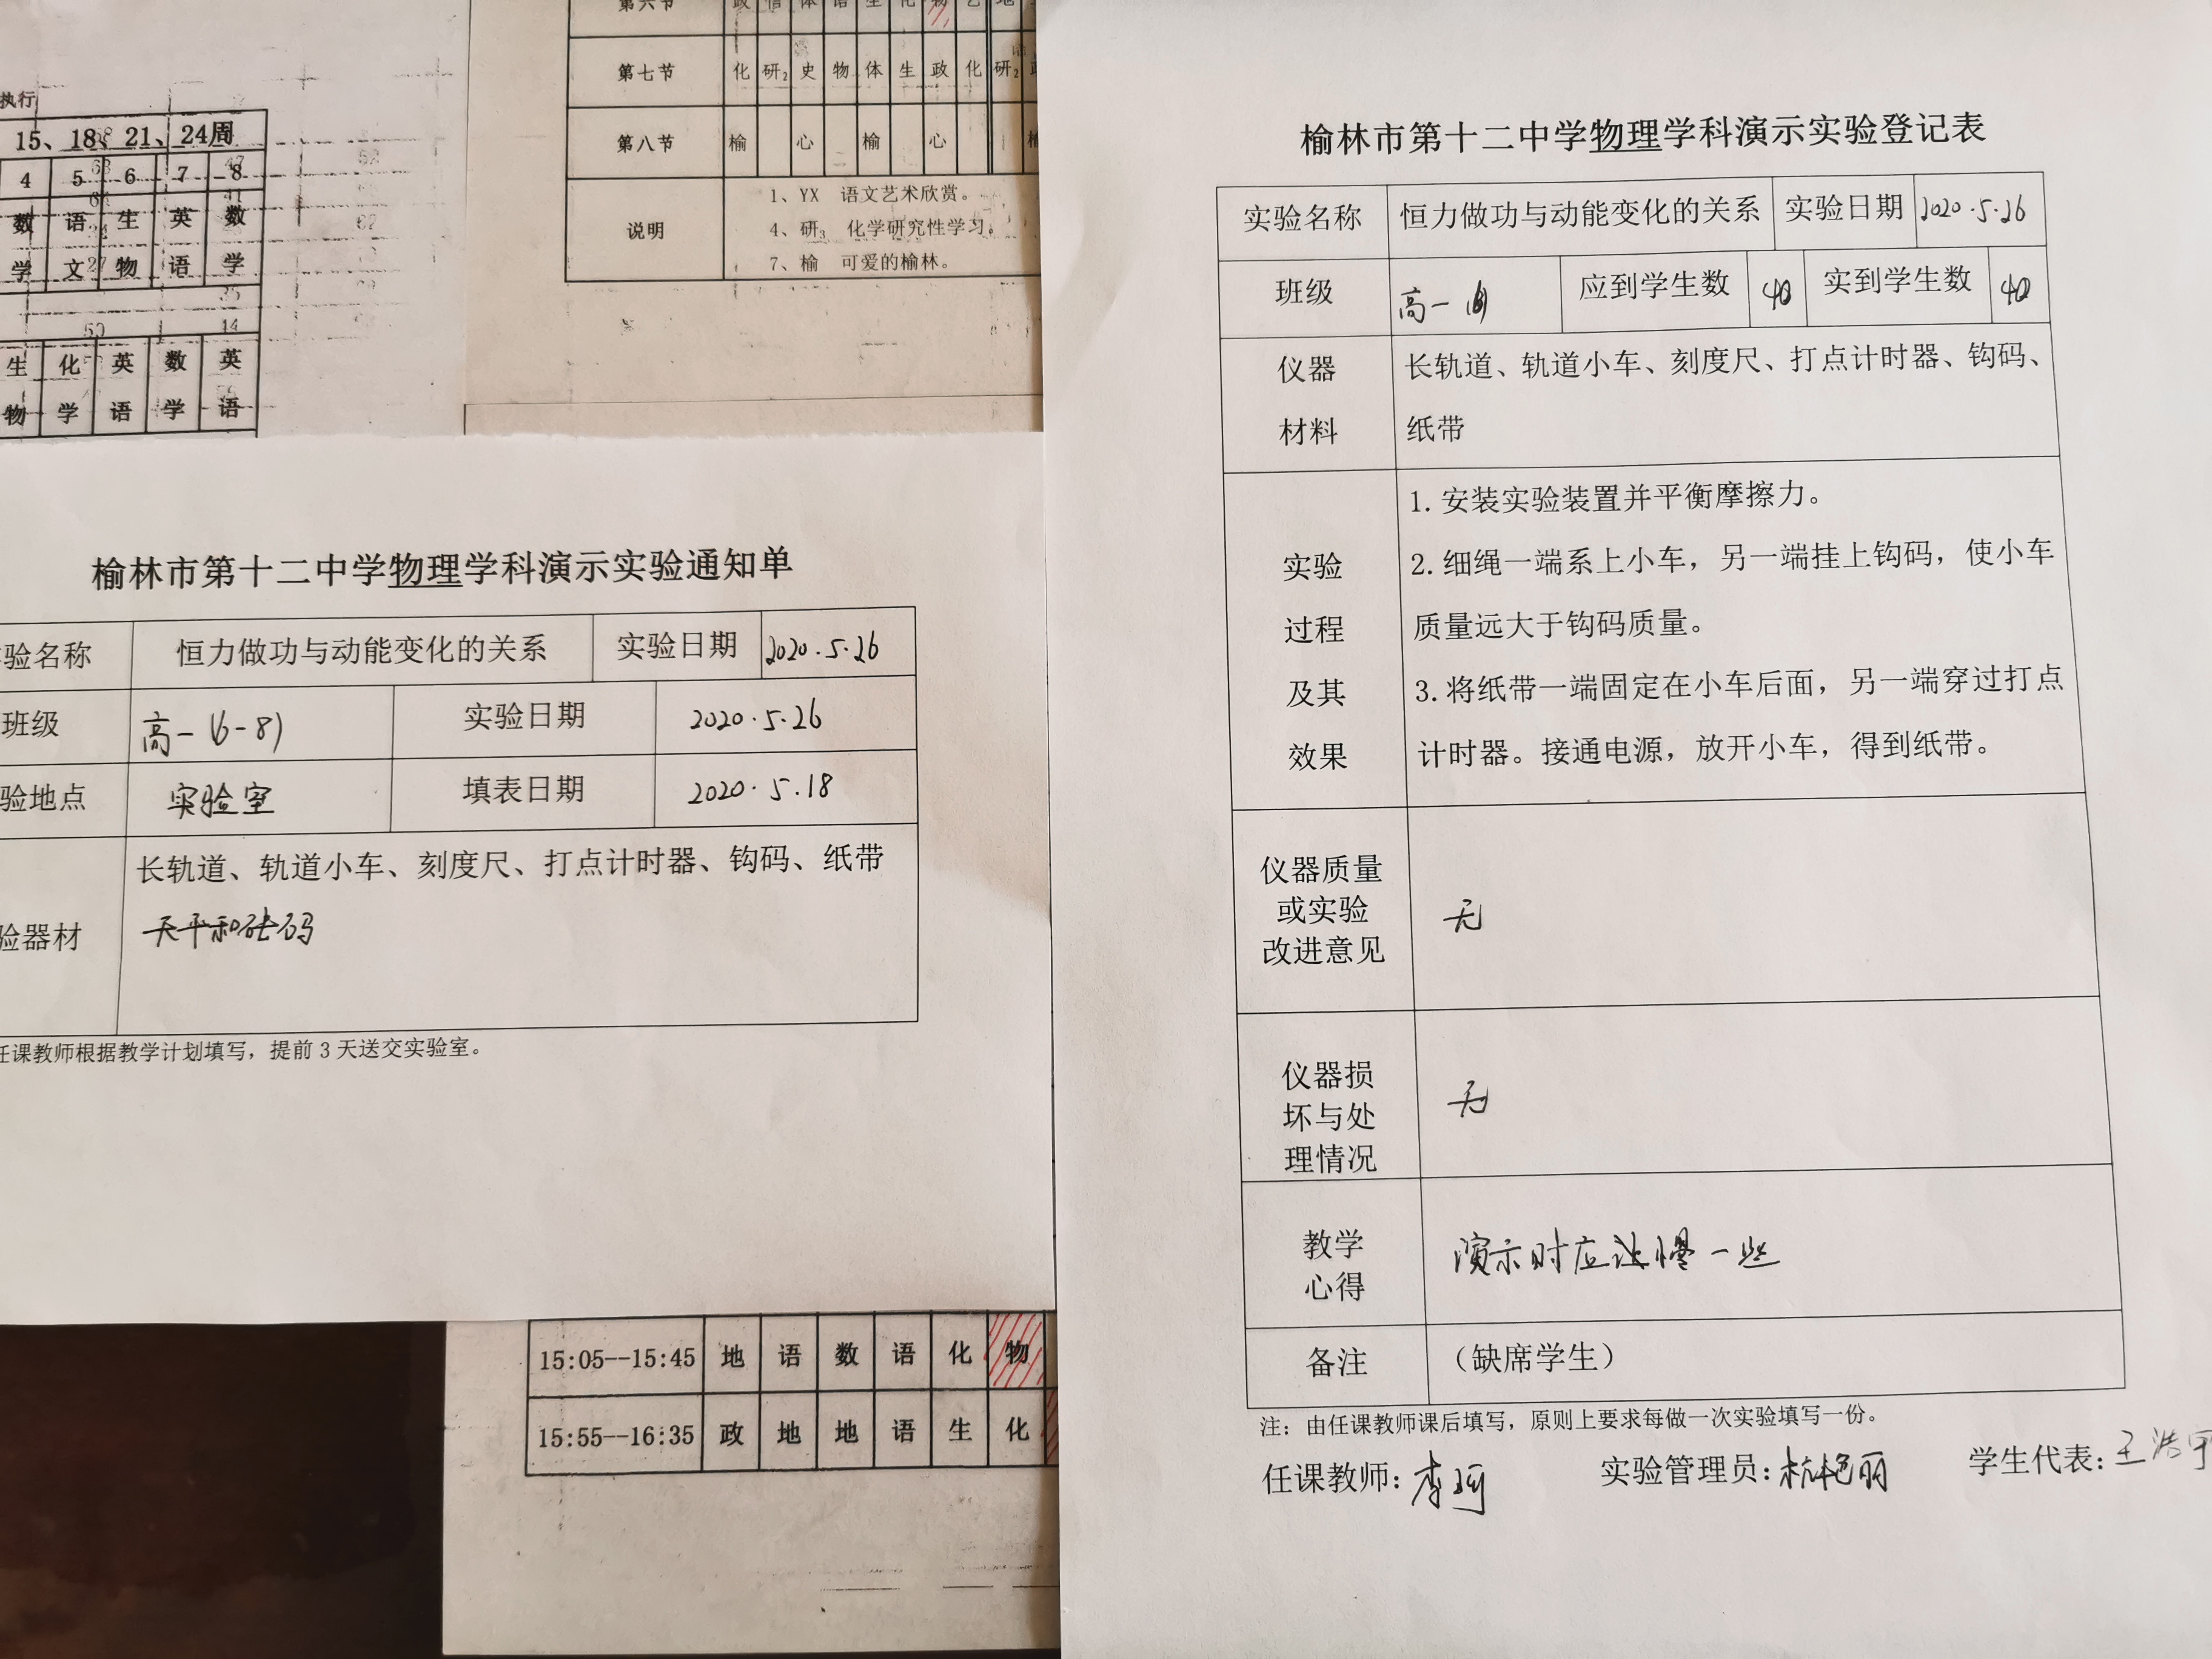 第六节
第七节 化 研2 史 物 体 生 政 化 研2
第八节 榆 心 榆 心
说明
1、YX 语文艺术欣赏。
4、研3 化学研究性学习。
7、榆 可爱的榆林。
执行
15、18、21、24周
4 5 6 7 8
数 语 生 英 数
学 文 物 语 学
生 化 英 数 英
物 学 语 学 语
榆林市第十二中学物理学科演示实验通知单
验名称 恒力做功与动能变化的关系 实验日期 2020.5.26
班级 高一(6-8) 实验日期 2020.5.26
验地点 实验室 填表日期 2020.5.18
验器材
长轨道、轨道小车、刻度尺、打点计时器、钩码、纸带
天平和砝码
任课教师根据教学计划填写，提前3天送交实验室。
15:05--15:45 地 语 数 语 化 物
15:55--16:35 政 地 地 语 生 化
榆林市第十二中学物理学科演示实验登记表
实验名称 恒力做功与动能变化的关系 实验日期 2020.5.26
班级 高一 应到学生数 40 实到学生数 40
仪器
材料
长轨道、轨道小车、刻度尺、打点计时器、钩码、
纸带
实验
过程
及其
效果
1.安装实验装置并平衡摩擦力。
2.细绳一端系上小车，另一端挂上钩码，使小车
质量远大于钩码质量。
3.将纸带一端固定在小车后面，另一端穿过打点
计时器。接通电源，放开小车，得到纸带。
仪器质量
或实验
改进意见
无
仪器损
坏与处
理情况
无
教学
心得
演示时应该慢一些
备注 （缺席学生）
注：由任课教师课后填写，原则上要求每做一次实验填写一份。
任课教师: 李 实验管理员: 杭艳丽 学生代表: 王浩宇